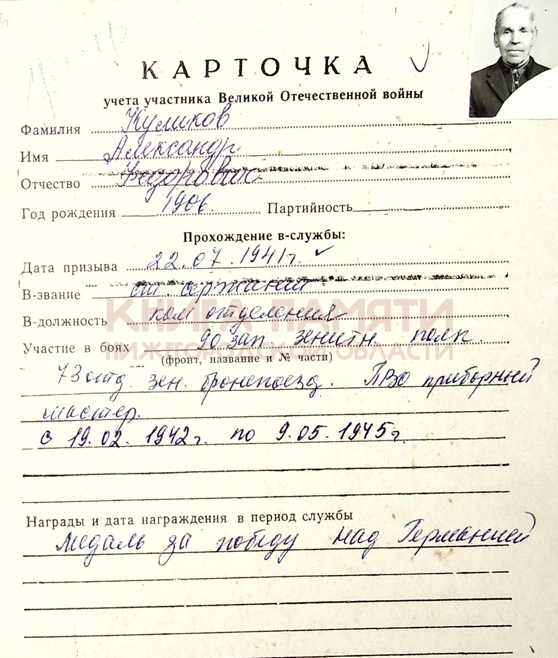 КАРТОЧКА
учета участника Великой Отечественной войны
Фамилия Куликов
Имя Александр
Отчество Федорович
Год рождения 1906. Партийность
Прохождение в-службы:
Дата призыва 22.07.1941г.
В-звание ст. сержант
В-должность ком отделения
Участие в боях 90 зап. зенитн. полк.
(фронт, название и № части)
73 отд. зен. бронепоезд. ПВО приборный
мастер.
с 19.02.1942г. по 9.05.1945г.
Награды и дата награждения в период службы
Медаль за победу над Германией
КНИГА ПАМЯТИ
НИЖЕГОРОДСКОЙ ОБЛАСТИ